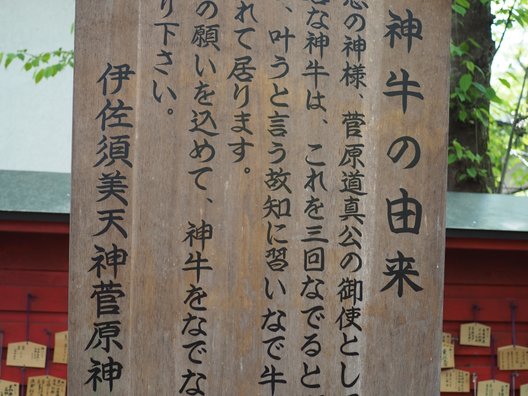 神牛の由来
の神様、菅原道真公の御使とし
な神牛は、これを三回なでると
、叶うと言う故知に習いなで牛
れて居ります。
の願いを込めて、神牛をなでな
り下さい。
伊佐須美天神菅原神